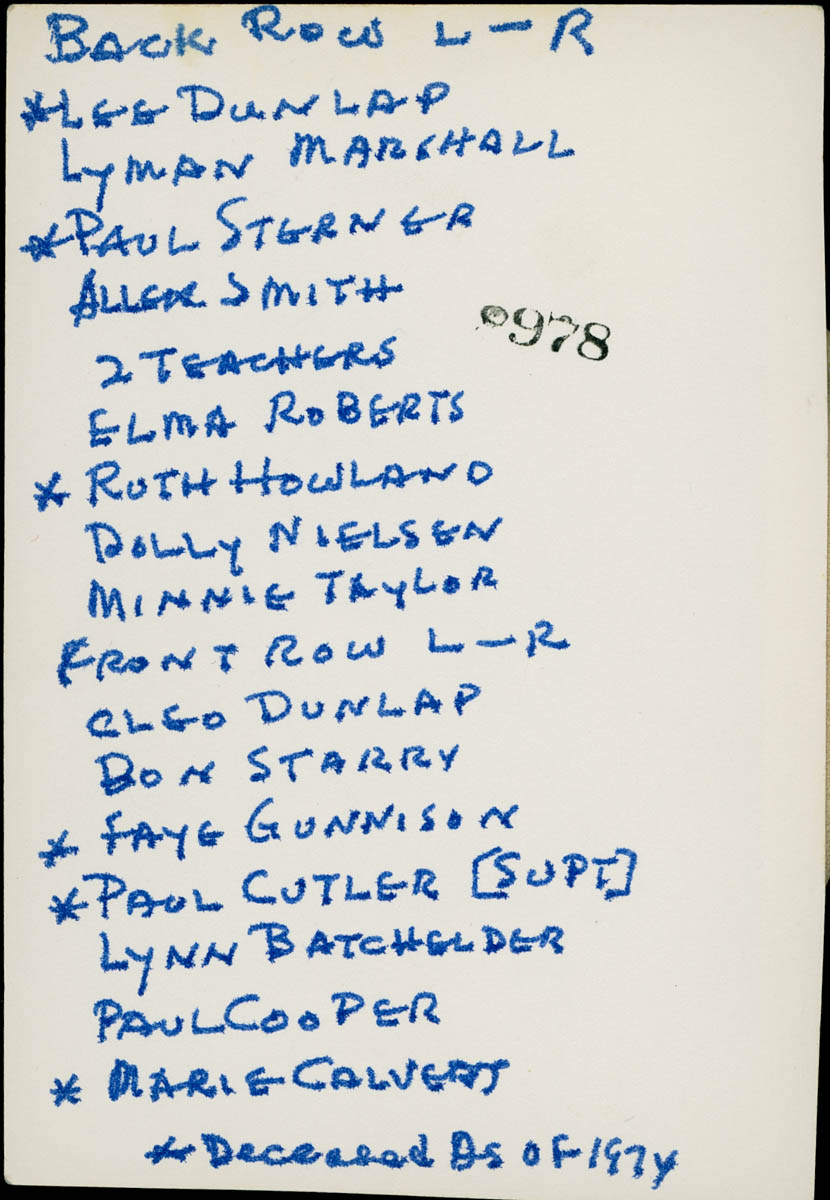 BACK ROW L-R
*LEE DUNLAP
LYMAN MARSHALL
*PAUL STERNER
ALLEN SMITH
2 TEACHERS
0978
ELMA ROBERTS
* RUTH HOWLAND
DOLLY NIELSEN
MINNIE TAYLOR
FRONT ROW L-R
CLEO DUNLAP
DON STARRY
* FAYE GUNNISON
*PAUL CUTLER [SUPT]
LYNN BATCHELDER
PAUL COOPER
* MARIE
* Deceased As OF 1974